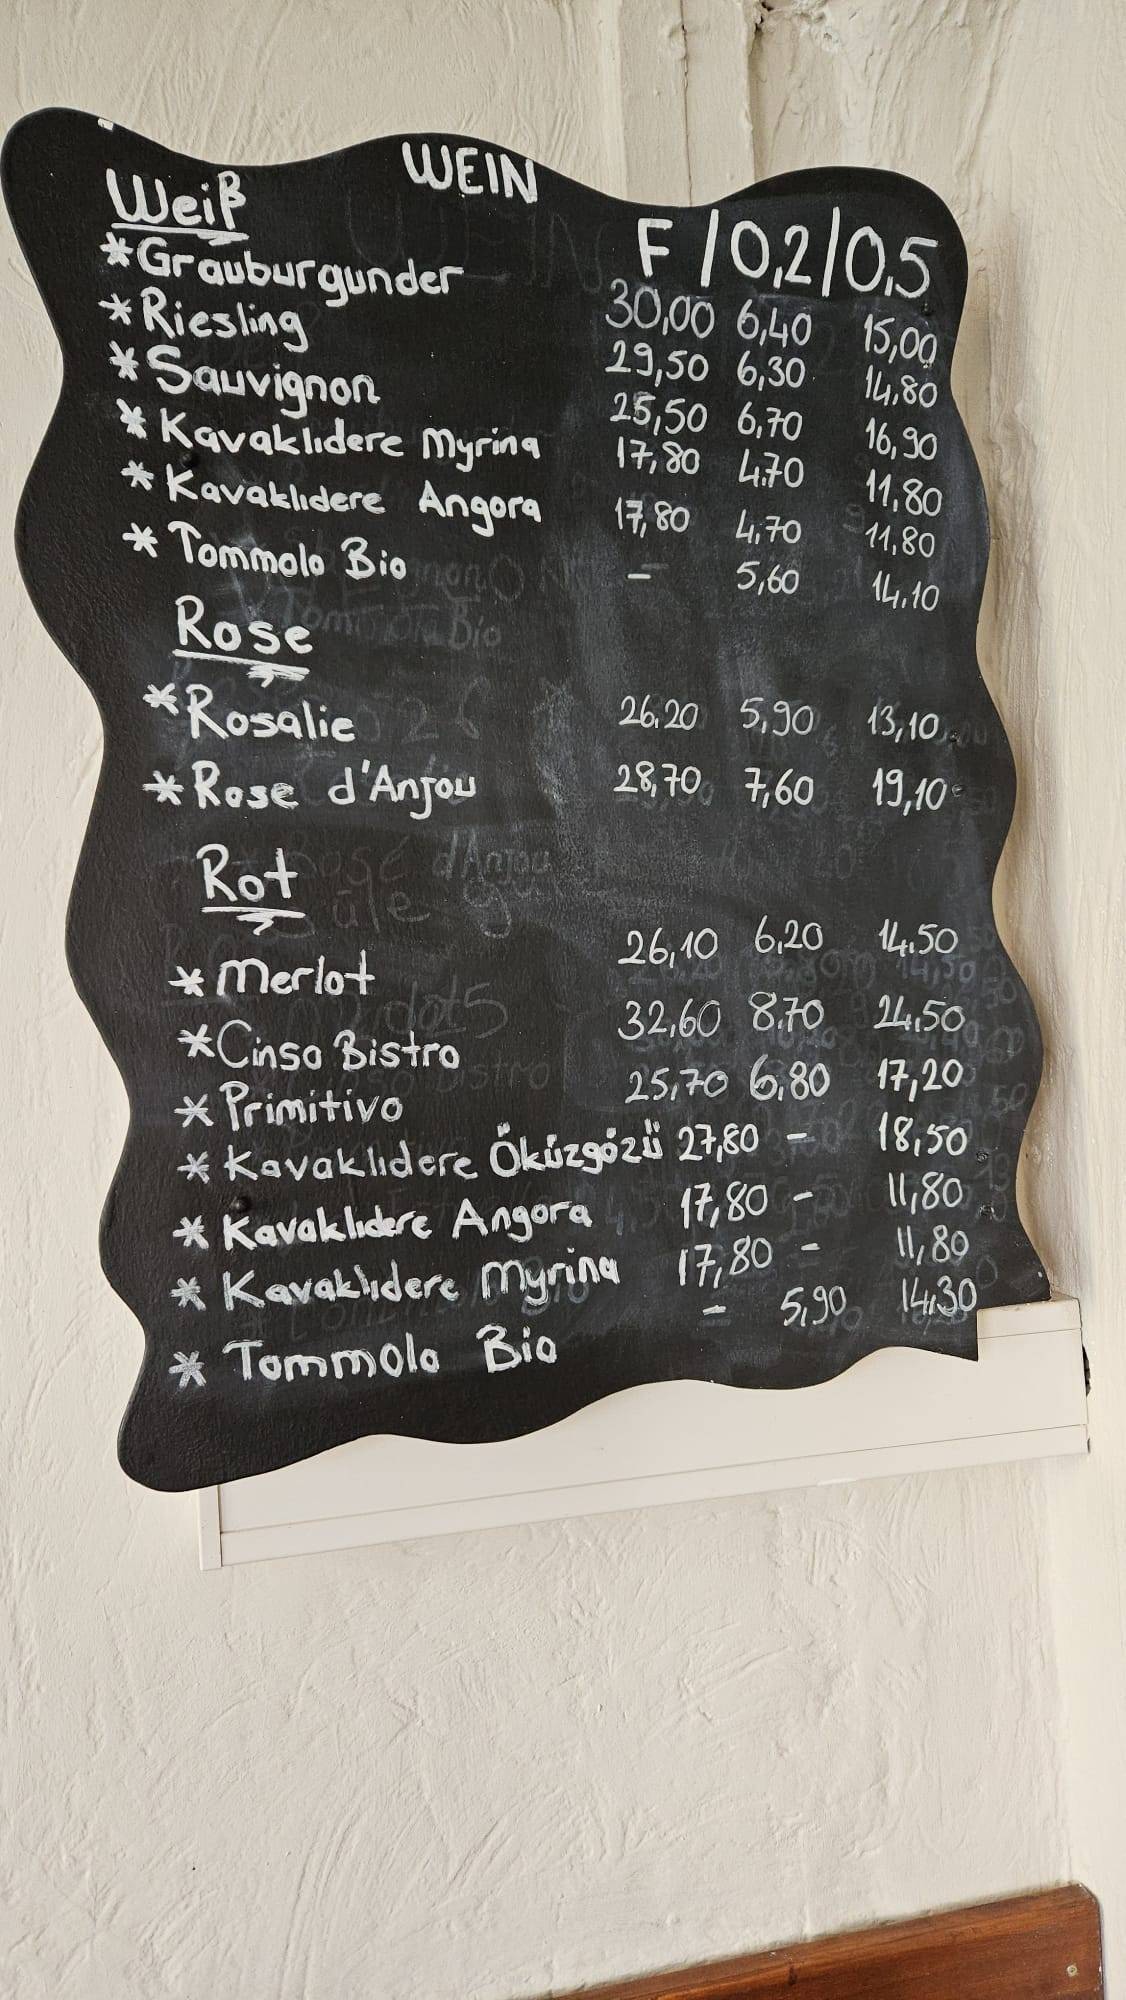 WEIN
Weiß F / 0,2 / 0,5
*Grauburgunder 30,00 6,40 15,00
*Riesling 29,50 6,30 14,80
*Sauvignon 25,50 6,70 16,90
*Kavaklıdere Myrina 17,80 4,70 11,80
*Kavaklıdere Angora 17,80 4,70 11,80
*Tommolo Bio - 5,60 14,10
Rose
*Rosalie 26,20 5,90 13,10
*Rose d'Anjou 28,70 7,60 19,10
Rot
*Merlot 26,10 6,20 14,50
*Cinso Bistro 32,60 8,70 24,50
*Primitivo 25,70 6,80 17,20
*Kavaklıdere Öküzgözü 27,80 - 18,50
*Kavaklıdere Angora 17,80 - 11,80
*Kavaklıdere Myrina 17,80 - 11,80
*Tommolo Bio - 5,90 14,30